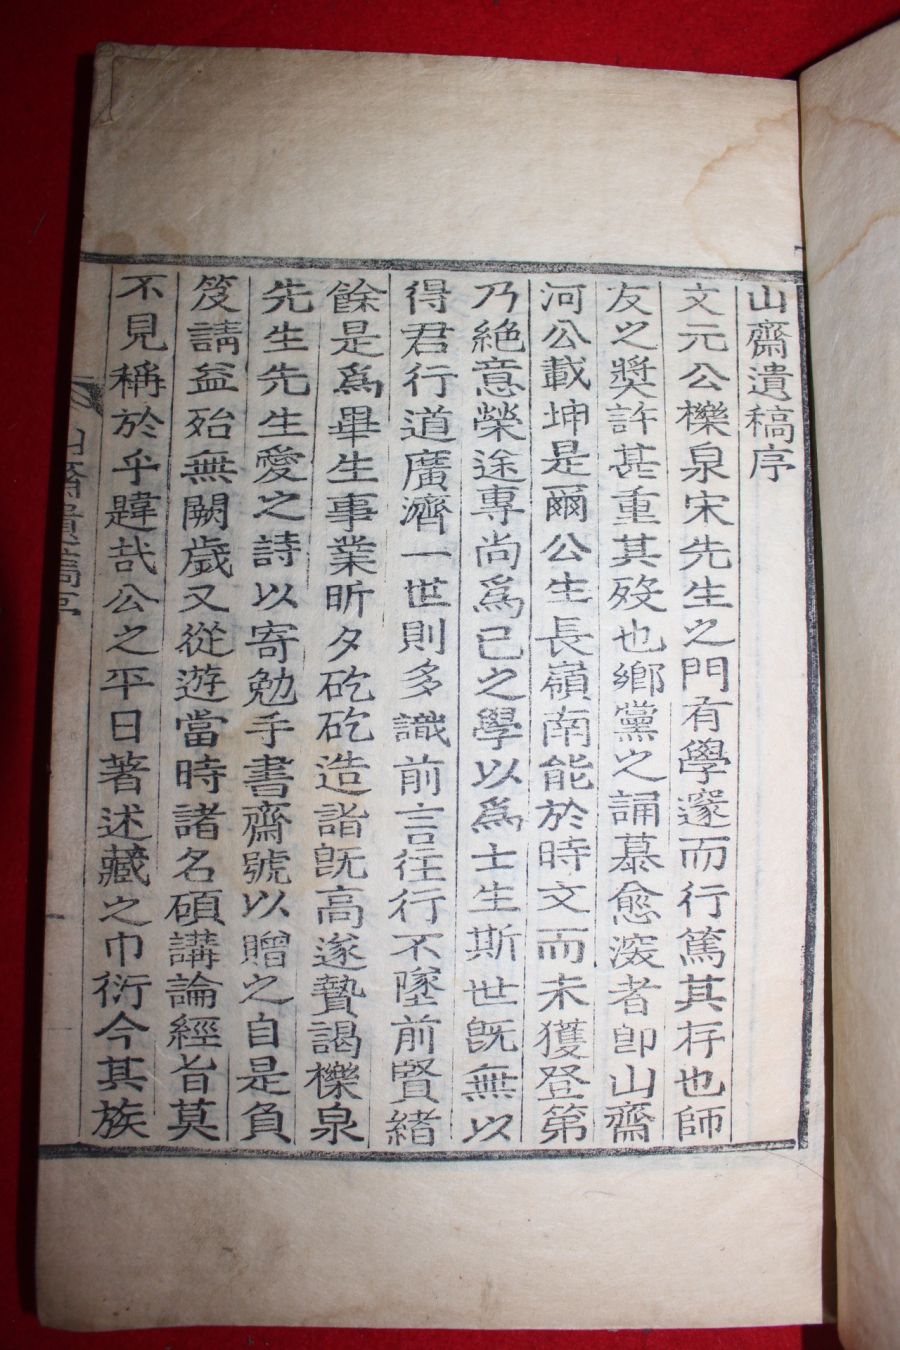 山齋遺稿序
文元公櫟泉宋先生之門有學邃而行篤其存也師
友之奬許甚重其歿也鄕黨之誦慕愈深者卽山齋
河公載坤是爾公生長嶺南能於時文而未獲登第
乃絶意榮途專尚爲己之學以爲士生斯世旣無以
得君行道廣濟一世則多識前言往行不墜前賢緖
餘是爲畢生事業昕夕矻矻造詣旣高遂贄謁櫟泉
先生先生愛之詩以寄勉手書齋號以贈之自是負
笈請益殆無闕歲又從遊當時諸名碩講論經旨莫
不見稱於乎韙哉公之平日著述藏之巾衍今其族
山齋遺稿序